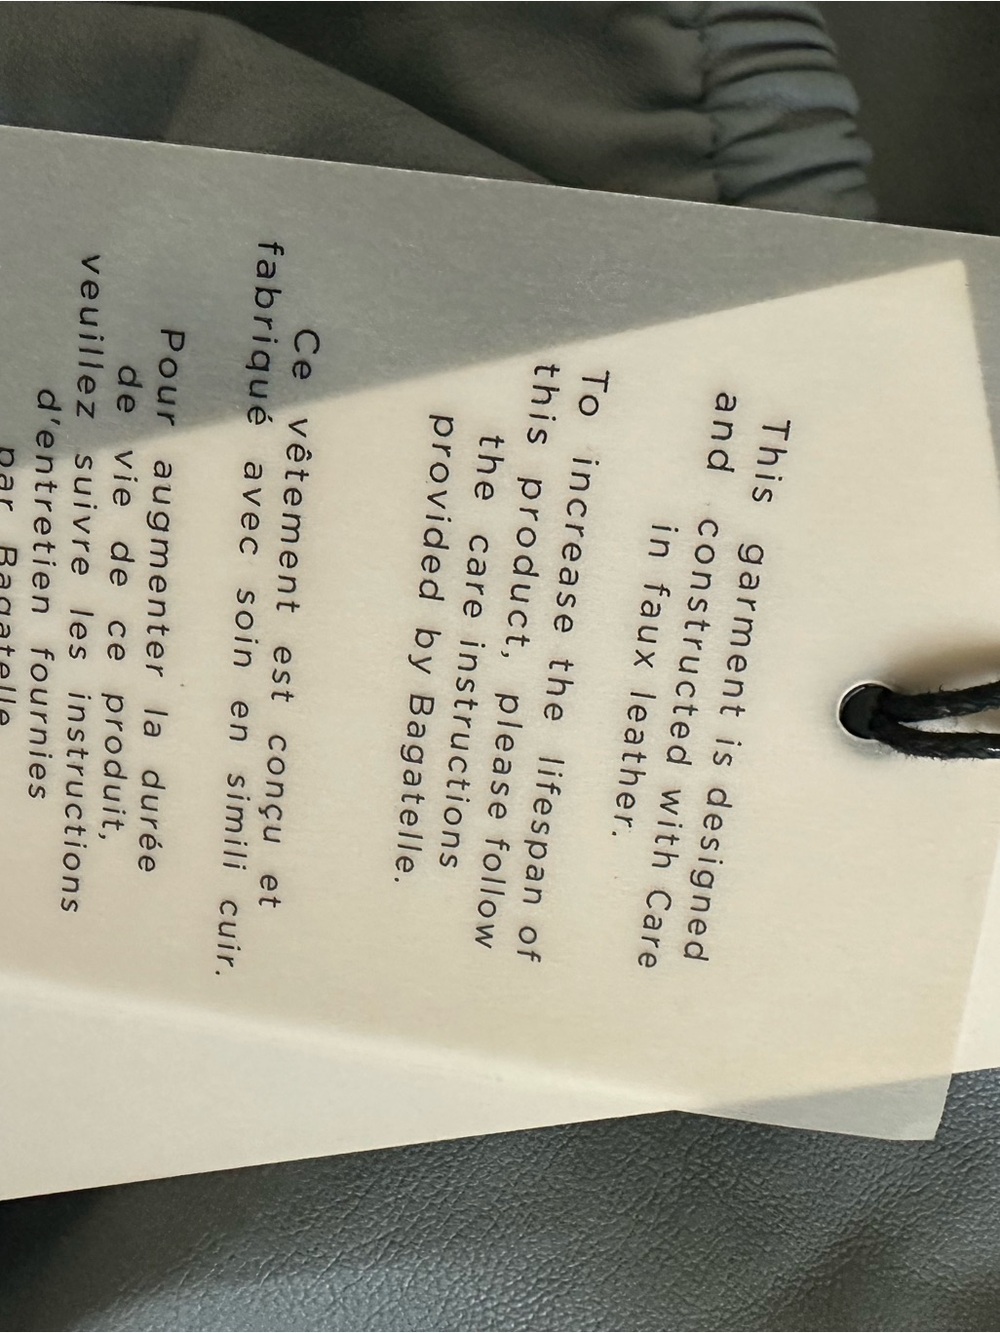 This garment is designed
and constructed with Care
in faux leather.
To increase the lifespan of
this product, please follow
the care instructions
provided by Bagatelle.
Ce vêtement est conçu et
fabriqué avec soin en simili cuir.
Pour augmenter la durée
de vie de ce produit,
veuillez suivre les instructions
d'entretien fournies
par Bagatelle